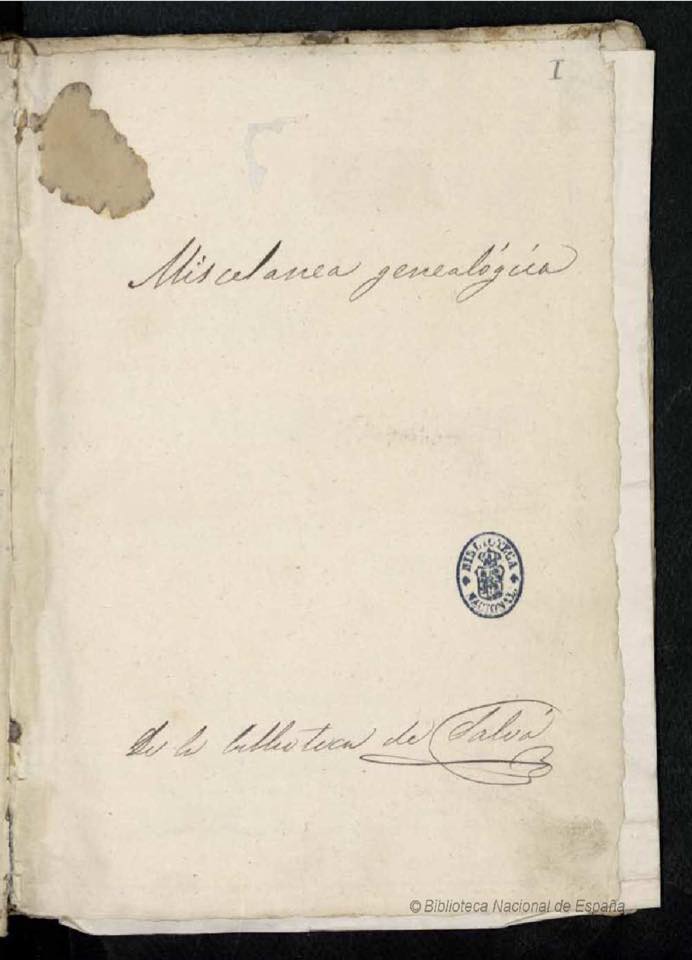 I
Miscelanea genealógica
BIBLIOTECA
NACIONAL
De la biblioteca de Salvá
© Biblioteca Nacional de España